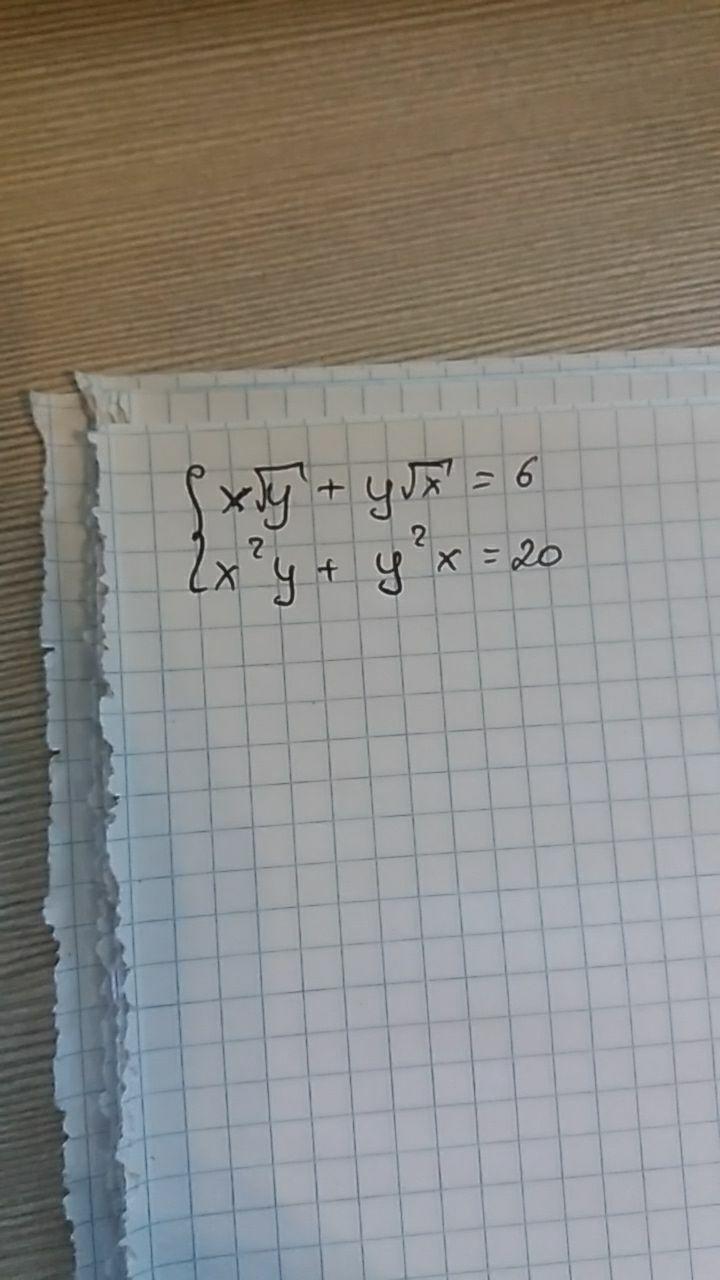 {x√y + y√x = 6
x²y + y²x = 20